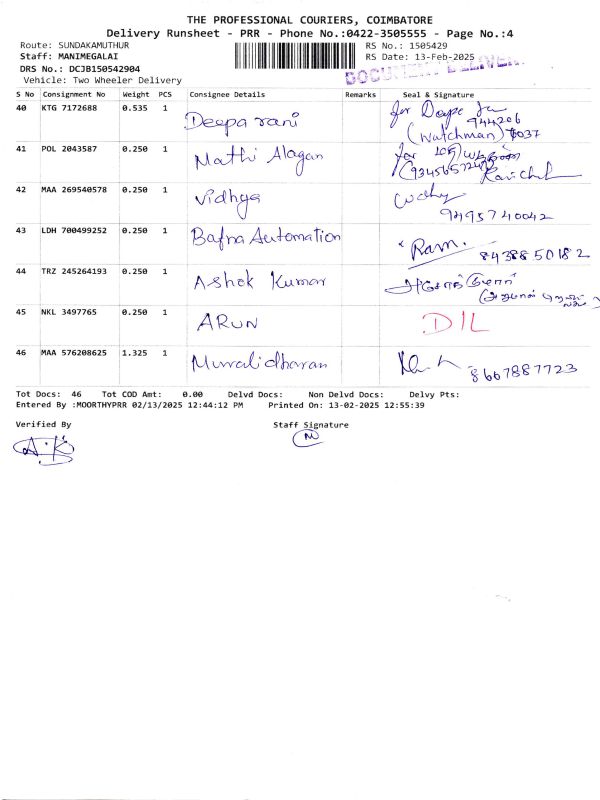 THE PROFESSIONAL COURIERS, COIMBATORE
Delivery Runsheet - PRR - Phone No.:0422-3505555 - Page No.:4
Route: SUNDAKAMUTHUR RS No.: 1505429
Staff: MANIMEGALAI RS Date: 13-Feb-2025
DRS No.: DCJB150542904
Vehicle: Two Wheeler Delivery
S No Consignment No Weight PCS Consignee Details Remarks Seal & Signature
40 KTG 7172688 0.535 1 Deepa rani for Deepa
944206
(Watchman)
41 POL 2043587 0.250 1 Mathi Alagan for
42 MAA 269540578 0.250 1 Vidhya
9495740042
43 LDH 700499252 0.250 1 Bafna Automation Ram.
8438850182
44 TRZ 245264193 0.250 1 Ashok Kumar
45 NKL 3497765 0.250 1 ARUN DIL
46 MAA 576208625 1.325 1 Murralidharan
8667887723
Tot Docs: 46 Tot COD Amt: 0.00 Delvd Docs: Non Delvd Docs: Delvy Pts:
Entered By :MOORTHYPRR 02/13/2025 12:44:12 PM Printed On: 13-02-2025 12:55:39
Verified By Staff Signature
A.K M